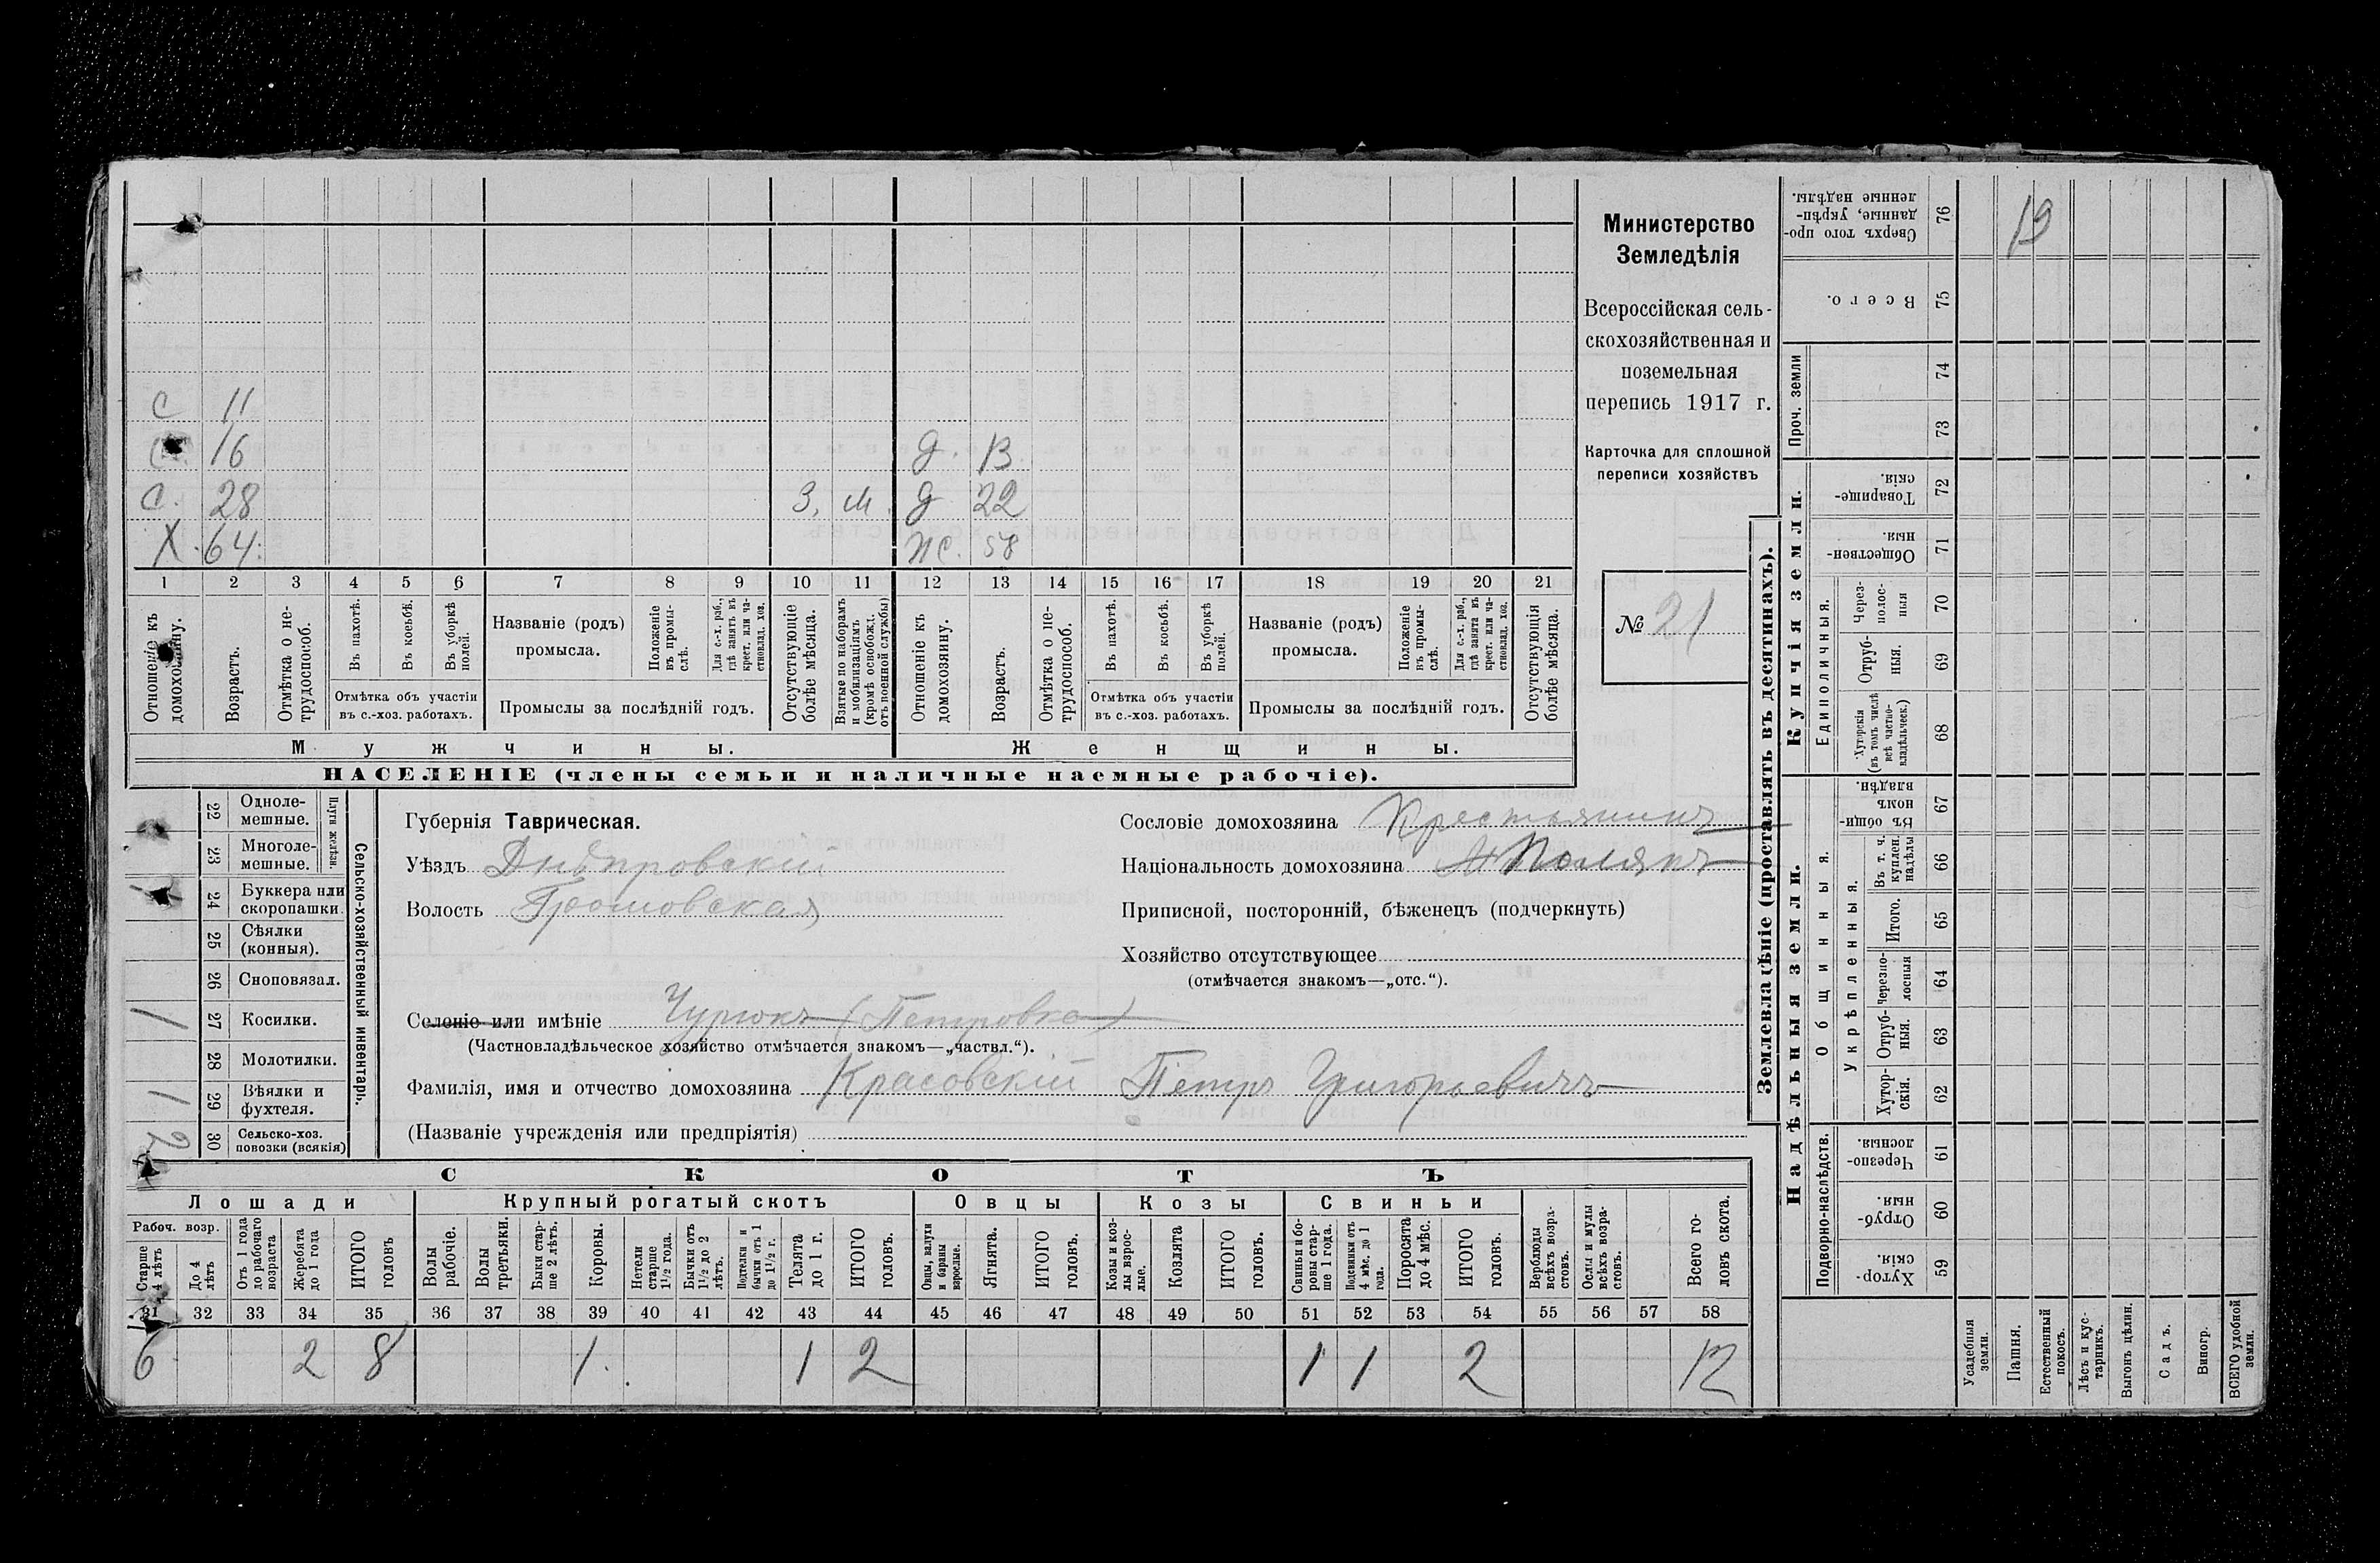 С 11
С. 16 д. 13
С. 28 З. М. д 22
Х. 64. Ж. 58
1 2 3 4 5 6 7 8 9 10 11 12 13 14 15 16 17 18 19 20 21
Отношеніе къ домохозяину.
Возрастъ.
Отмѣтка о нетрудоспособ.
Въ пахотѣ.
Въ косьбѣ.
Въ уборкѣ полей.
Отмѣтка объ участіи
въ с.-хоз. работахъ.
Названіе (родъ)
промысла.
Положеніе въ промыслѣ.
Для с.-х. раб., гдѣ занятъ въ крест. или частновлад. хоз.
Промыслы за послѣдній годъ.
Отсутствующіе болѣе мѣсяца.
Взятые по наборамъ и мобилизаціямъ (кромѣ освобожд. отъ военной службы)
Отношеніе къ домохозяину.
Возрастъ.
Отмѣтка о нетрудоспособ.
Въ пахотѣ.
Въ косьбѣ.
Въ уборкѣ полей.
Отмѣтка объ участіи
въ с.-хоз. работахъ.
Названіе (родъ)
промысла.
Положеніе въ промыслѣ.
Для с.-х. раб., гдѣ занята въ крест. или частновлад. хоз.
Промыслы за послѣдній годъ.
Отсутствующія болѣе мѣсяца.
Мужчины. Женщины.
НАСЕЛЕНІЕ (члены семьи и наличные наемные рабочіе).
Министерство
Земледѣлія
Всероссійская сель-
скохозяйственная и
поземельная
перепись 1917 г.
Карточка для сплошной
переписи хозяйствъ
№ 21
22 Одноле-
мешные.
23 Многоле-
мешные.
Плуги желѣзн.
24 Буккера или
скоропашки.
25 Сѣялки
(конныя).
26 Сноповязал.
1 27 Косилки.
28 Молотилки.
1 29 Вѣялки и
фухтеля.
2 30 Сельско-хоз.
повозки (всякія)
Сельско-хозяйственный инвентарь.
Губернія Таврическая.
Уѣздъ Днѣпровскій
Волость Громовская
Сословіе домохозяина Крестьянинъ
Національность домохозяина Полякъ
Приписной, посторонній, бѣженецъ (подчеркнуть)
Хозяйство отсутствующее
(отмѣчается знакомъ—„отс.“).
Селеніе или имѣніе Чурюкъ (Петровка)
(Частновладѣльческое хозяйство отмѣчается знакомъ—„частвл.“).
Фамилія, имя и отчество домохозяина Красовскій Петръ Григорьевичъ
(Названіе учрежденія или предпріятія)
СКОТЪ
Лошади Крупный рогатый скотъ Овцы Козы Свиньи
Рабоч. возр.
Старше 4 лѣтъ
До 4 лѣтъ
Отъ 1 года до рабочаго возраста
Жеребята до 1 года
ИТОГО головъ
Волы рабочіе.
Волы третьяки.
Быки старше 2 лѣтъ.
Коровы.
Нетели старше 1 1/2 года.
Бычки отъ 1 1/2 до 2 лѣтъ.
Подтелки и бычки отъ 1 до 1 1/2 г.
Телята до 1 г.
ИТОГО головъ.
Овцы, валухи и бараны взрослые.
Ягнята.
ИТОГО головъ.
Козы и козлы взрослые.
Козлята
ИТОГО головъ.
Свиньи и боровы старше 1 года.
Подсвинки отъ 4 мѣс. до 1 года.
Поросята до 4 мѣс.
ИТОГО головъ.
Верблюды всѣхъ возрастовъ.
Ослы и мулы всѣхъ возрастовъ.
Всего головъ скота.
31 32 33 34 35 36 37 38 39 40 41 42 43 44 45 46 47 48 49 50 51 52 53 54 55 56 57 58
6 2 8 1. 1 2 1 1 2 12
Землевладѣніе (проставлять въ десятинахъ).
Купчія земли.
Надѣльныя земли.
Сверхъ того проданные, укрѣпленные надѣлы. 76 19
Всего. 75
Проч. земли 74 73
Товарищескія. 72
Общественныя. 71
Единоличныя.
Черезполосныя 70
Отрубныя. 69
Хуторскія (въ томъ числѣ всѣ частновладѣльческ.) 68
Общинныя.
Въ общинномъ владѣн. 67
Укрѣпленныя.
Въ т. ч. куплен. надѣлы 66
Итого. 65
Черезполосныя 64
Отрубныя. 63
Хуторскія. 62
Подворно-наслѣдств.
Черезполосныя. 61
Отрубныя. 60
Хуторскія. 59
Усадебныя земли.
Пашня.
Естественный покосъ.
Лѣсъ и кустарникъ.
Выгонъ цѣлин.
Садъ.
Виногр.
ВСЕГО удобной земли.